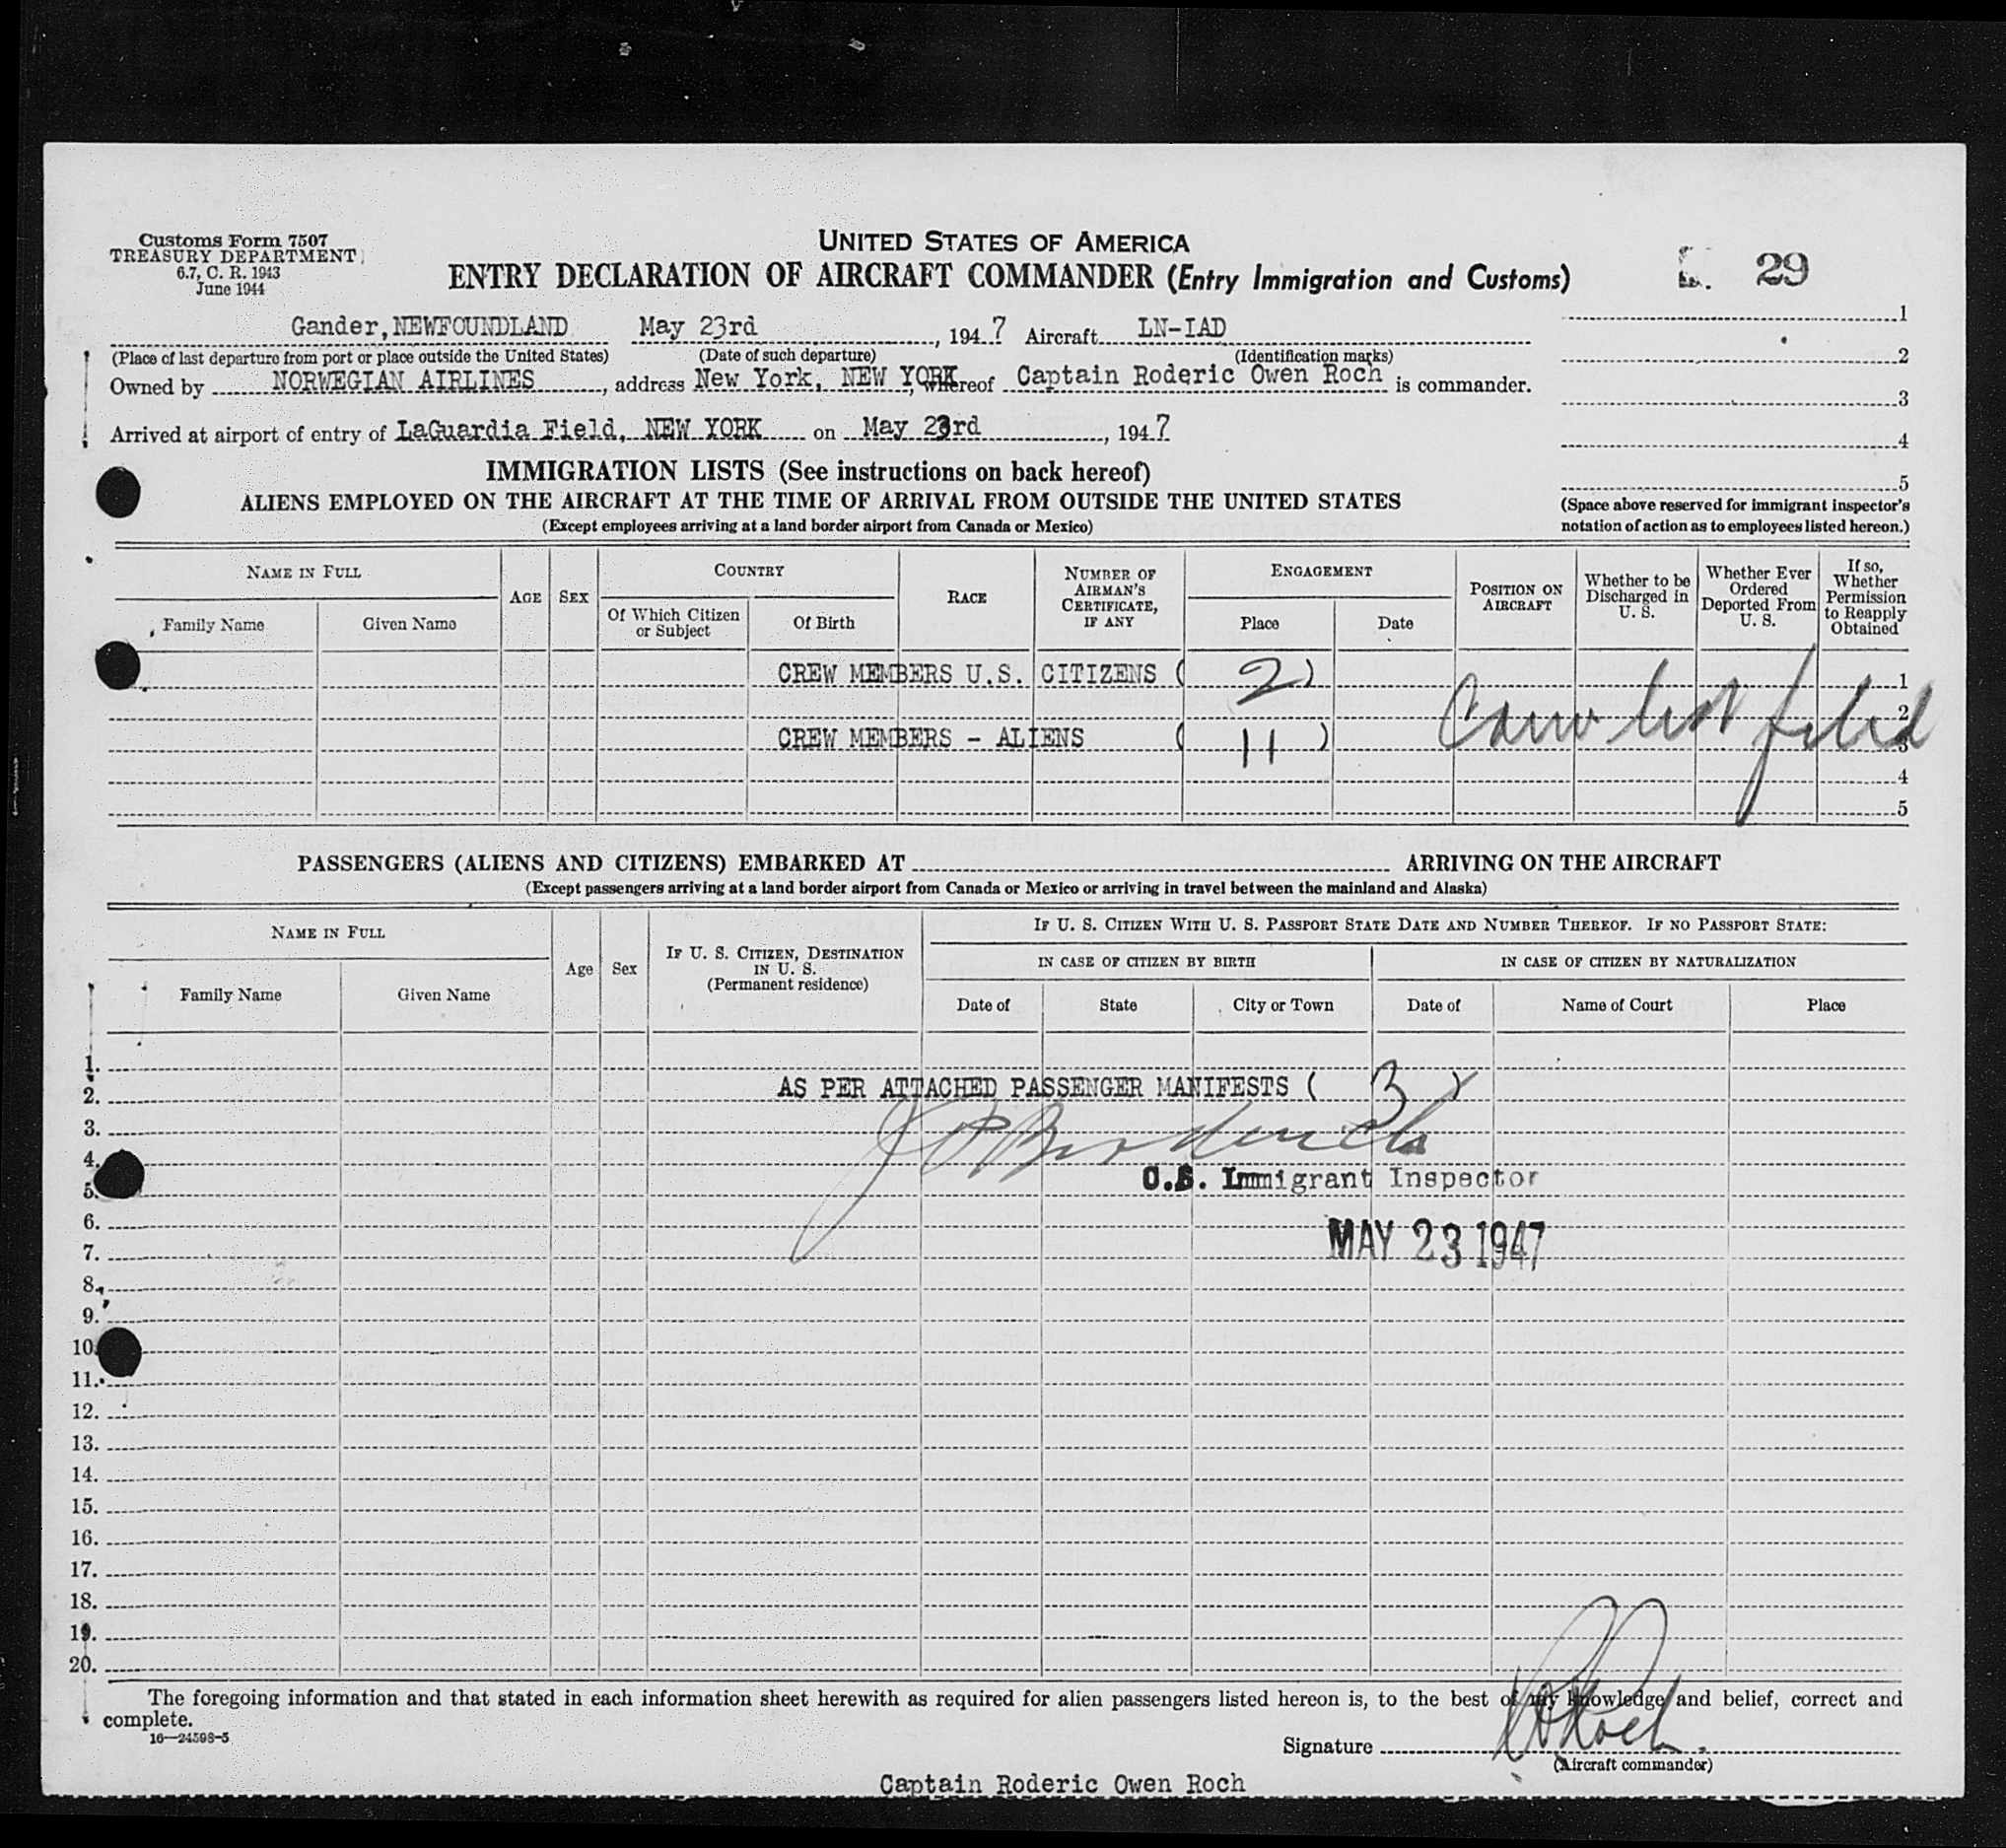 Customs Form 7507
TREASURY DEPARTMENT
6.7, C. R. 1943
June 1944
UNITED STATES OF AMERICA
ENTRY DECLARATION OF AIRCRAFT COMMANDER (Entry Immigration and Customs)
29
Gander, NEWFOUNDLAND May 23rd, 1947 Aircraft LN-IAD
(Place of last departure from port or place outside the United States) (Date of such departure) (Identification marks)
Owned by NORWEGIAN AIRLINES, address New York, NEW YORK, whereof Captain Roderic Owen Roch is commander.
Arrived at airport of entry of LaGuardia Field, NEW YORK on May 23rd, 1947
1
2
3
4
5
(Space above reserved for immigrant inspector's
notation of action as to employees listed hereon.)
IMMIGRATION LISTS (See instructions on back hereof)
ALIENS EMPLOYED ON THE AIRCRAFT AT THE TIME OF ARRIVAL FROM OUTSIDE THE UNITED STATES
(Except employees arriving at a land border airport from Canada or Mexico)
NAME IN FULL
Family Name
Given Name
AGE
SEX
COUNTRY
Of Which Citizen
or Subject
Of Birth
RACE
NUMBER OF
AIRMAN'S
CERTIFICATE,
IF ANY
ENGAGEMENT
Place
Date
POSITION ON
AIRCRAFT
Whether to be
Discharged in
U. S.
Whether Ever
Ordered
Deported From
U. S.
If so,
Whether
Permission
to Reapply
Obtained
CREW MEMBERS U.S. CITIZENS ( 2 ) 1
2
CREW MEMBERS - ALIENS ( 11 ) 3
4
5
list filed
PASSENGERS (ALIENS AND CITIZENS) EMBARKED AT ARRIVING ON THE AIRCRAFT
(Except passengers arriving at a land border airport from Canada or Mexico or arriving in travel between the mainland and Alaska)
NAME IN FULL
Family Name
Given Name
Age
Sex
IF U. S. CITIZEN, DESTINATION
IN U. S.
(Permanent residence)
IF U. S. CITIZEN WITH U. S. PASSPORT STATE DATE AND NUMBER THEREOF. IF NO PASSPORT STATE:
IN CASE OF CITIZEN BY BIRTH
IN CASE OF CITIZEN BY NATURALIZATION
Date of
State
City or Town
Date of
Name of Court
Place
1.
2. AS PER ATTACHED PASSENGER MANIFESTS ( 3 )
3.
4.
5. U.S. Immigrant Inspector
6.
7. MAY 23 1947
8.
9.
10.
11.
12.
13.
14.
15.
16.
17.
18.
19.
20.
The foregoing information and that stated in each information sheet herewith as required for alien passengers listed hereon is, to the best of my knowledge and belief, correct and
complete.
16—24598-5
Signature R O Roch
(Aircraft commander)
Captain Roderic Owen Roch